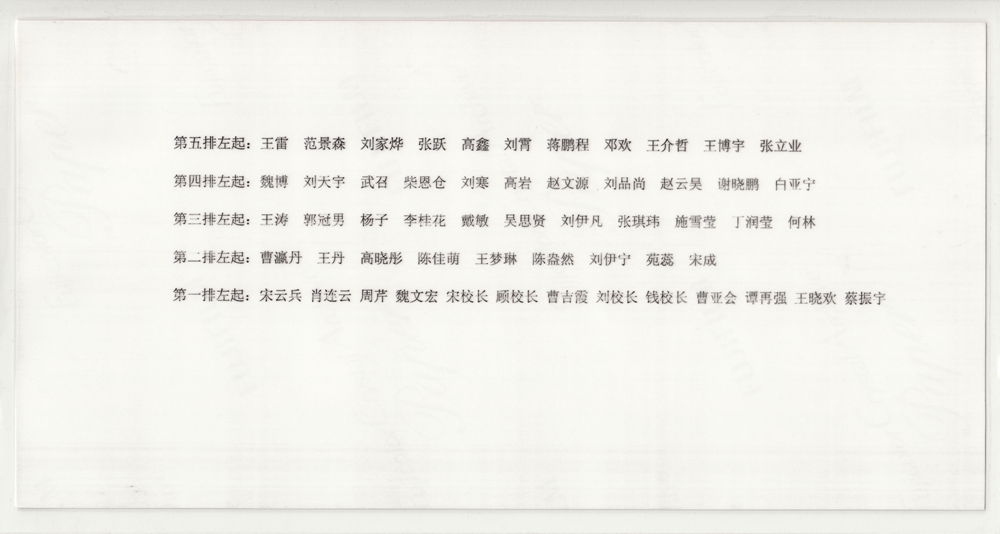 第五排左起：王雷 范景森 刘家烨 张跃 高鑫 刘霄 蒋鹏程 邓欢 王介哲 王博宇 张立业
第四排左起：魏博 刘天宇 武召 柴恩仓 刘寒 高岩 赵文源 刘品尚 赵云昊 谢晓鹏 白亚宁
第三排左起：王涛 郭冠男 杨子 李桂花 戴敏 吴思贤 刘伊凡 张琪玮 施雪莹 丁润莹 何林
第二排左起：曹瀛丹 王丹 高晓彤 陈佳萌 王梦琳 陈盎然 刘伊宁 苑蕊 宋成
第一排左起：宋云兵 肖连云 周芹 魏文宏 宋校长 顾校长 曹吉霞 刘校长 钱校长 曹亚会 谭再强 王晓欢 蔡振宇